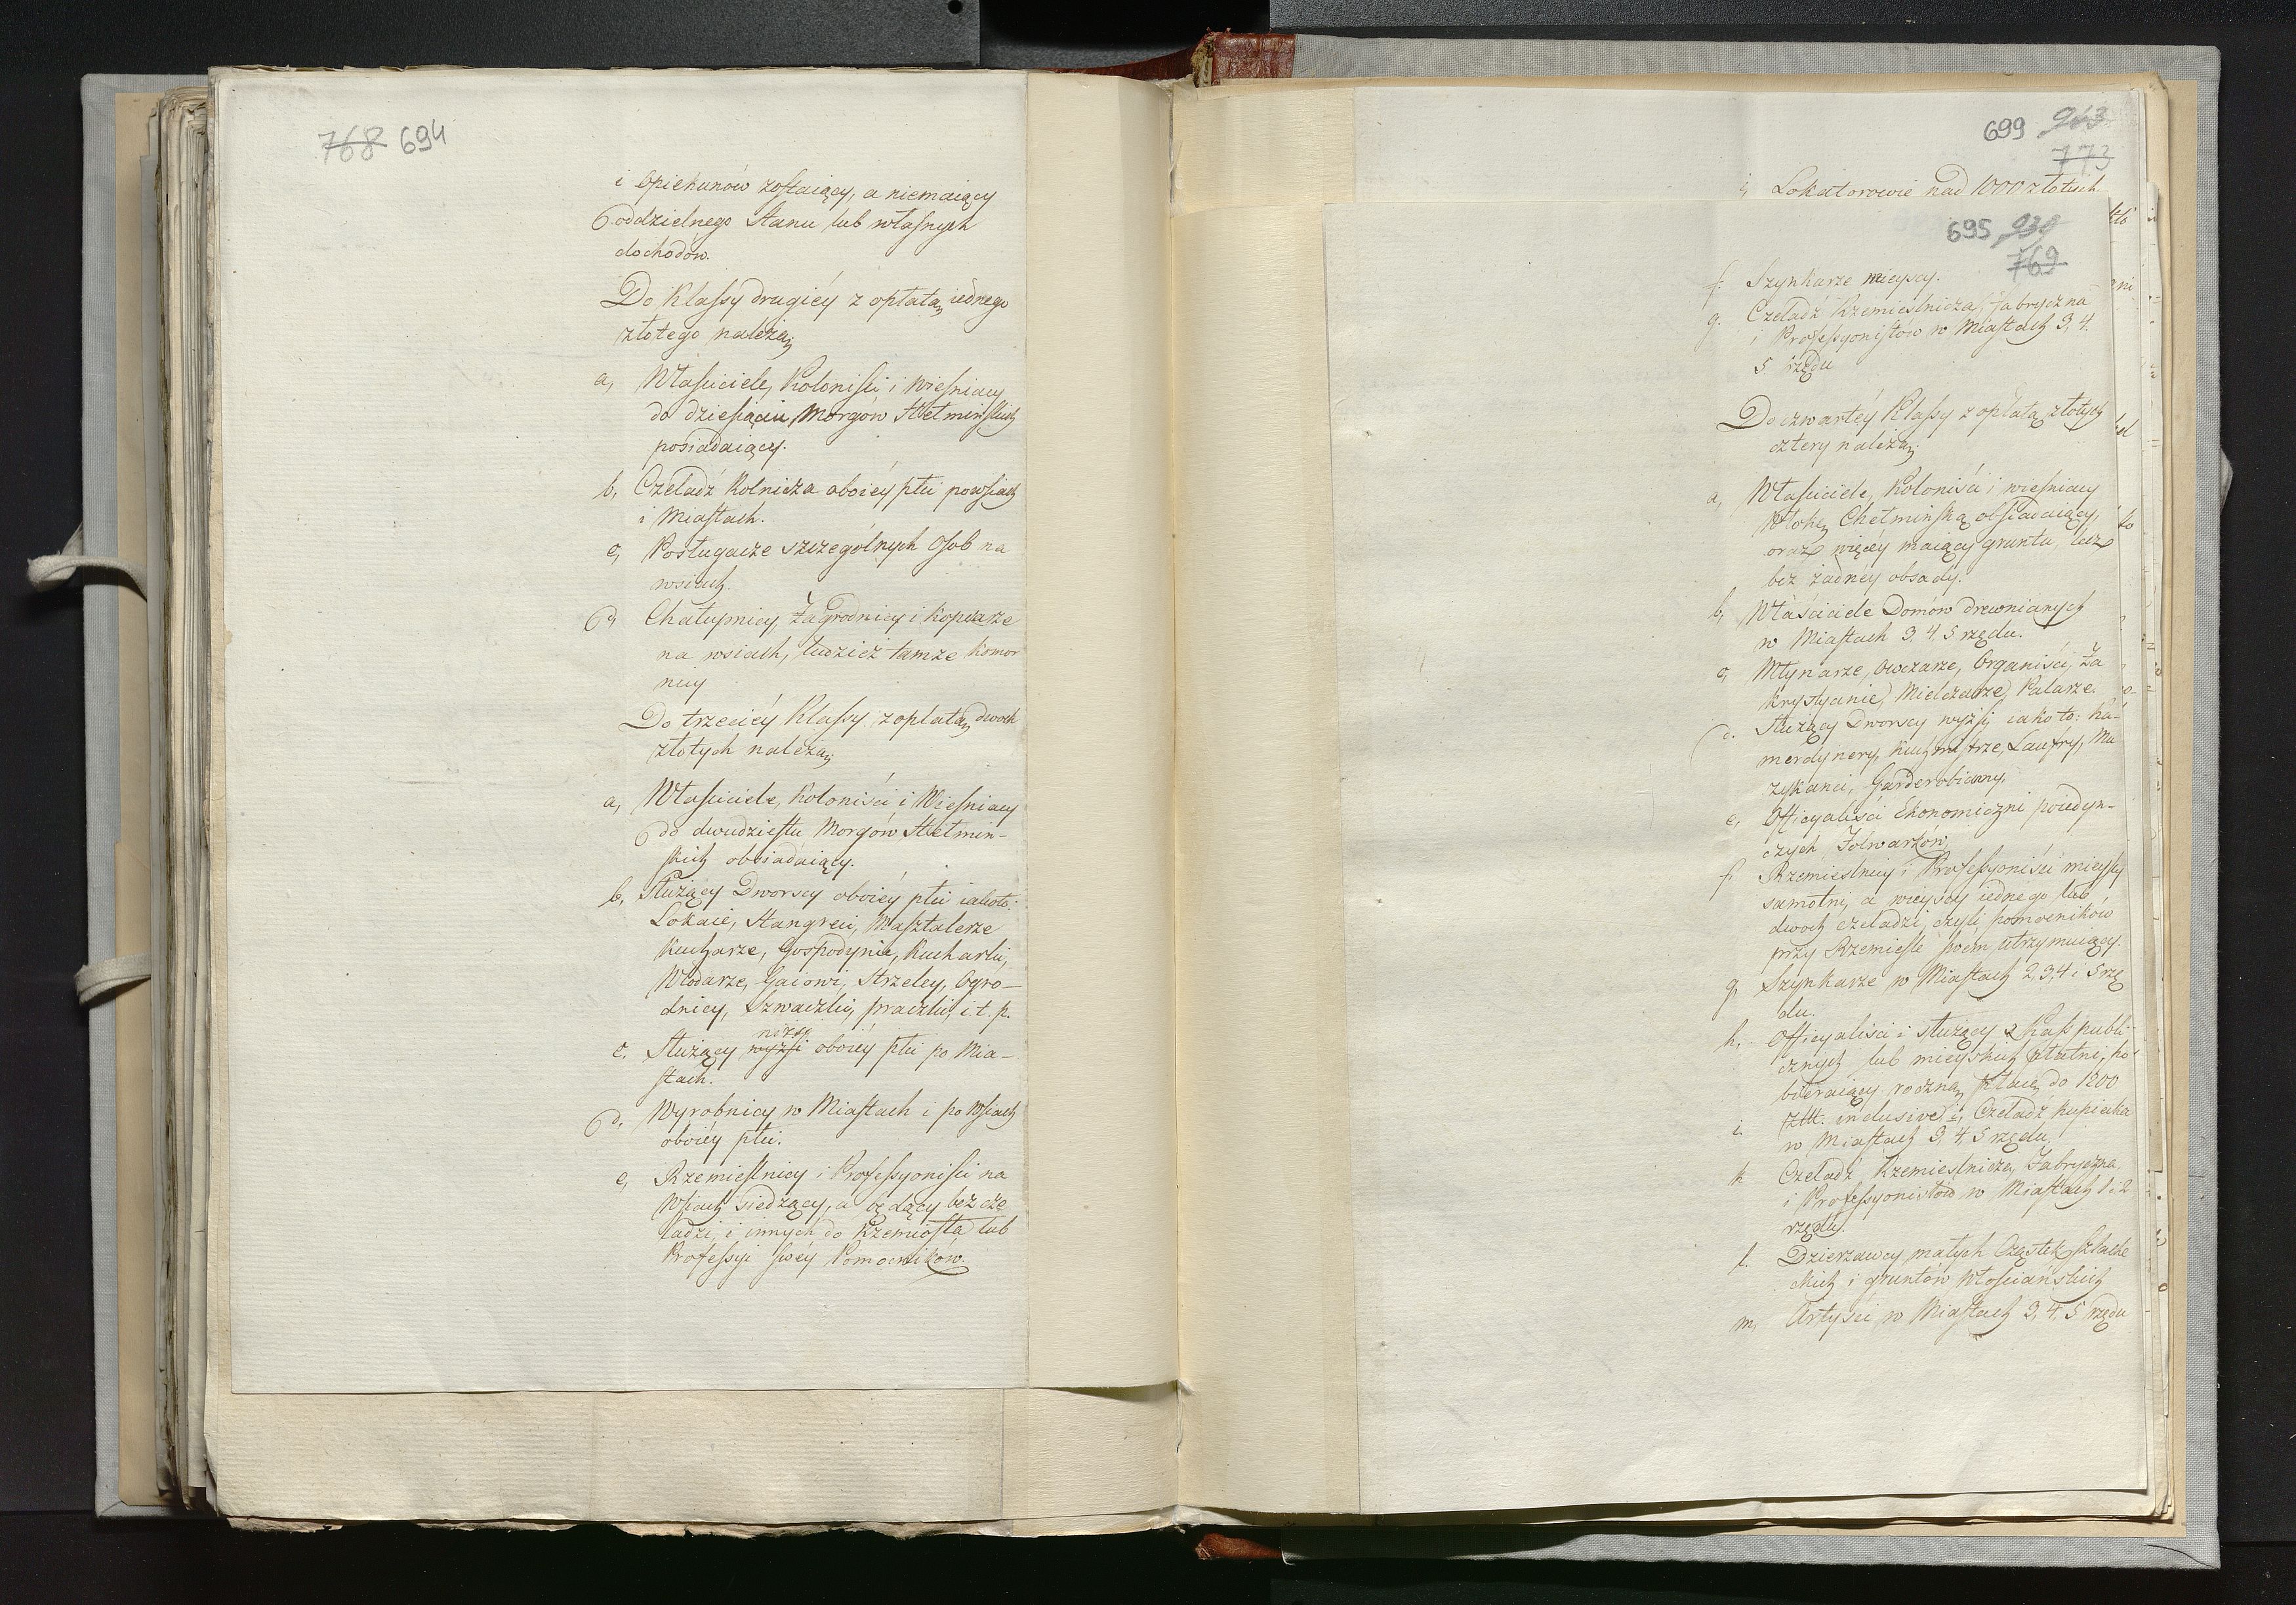 768 694
i Opiekunów zostaiący, a niemaiący
oddzielnego Stanu lub własnych
dochodów.
Do Klassy drugiéy z opłatą iednego
złotego należą
a, Właściciele, Koloniści i wieśniacy
do dziesięciu Morgów Chełmińskich
posiadaiący.
b, Czeladź Rolnicza oboiéy płci po wsiach
i Miastach.
c, Posługacze szczególnych Osob na
wsiach.
d, Chałupnicy, Zagrodnicy i Kopiarze
na wsiach, tudzież tamże Komor
nicy
Do trzeciéy Klassy z opłatą dwoch
złotych należą
a, Właściciele, Koloniści i Wieśniacy
do dwudziestu Morgów Chełmin-
skich obsiadaiący.
b, Służący Dworscy oboiéy płci iakoto:
Lokaie, Stangreci, Masztalerze
Kucharze, Gospodynie, Kucharki,
Włodarze, Gaiowi, Strzelcy, Ogro-
dnicy, Szwaczki, praczki, i. t. p.
niżsi
c. Służący wyżsi oboiéy płci po Mia-
stach.
d. Wyrobnicy w Miastach i po Wsiach
oboiéy płci.
e, Rzemieślnicy i Professyoniści na
Wsiach siedzący, a będący bez cze
ladzi, i innych do Rzemiosła lub
Professyi swéy Pomocników.
699 963
773
i, Lokatorowie nad 1000 złotych
695 939
769
f. Szynkarze mieyscy.
g. Czeladź Rzemieślnicza, Fabryczna
i Professyonistow w Miastach 3, 4.
5. rzędu
Do czwartéy Klassy z opłatą złotych
cztery należą
a, Właściciele, Koloniści i wieśniacy
Włokę Chełmińską obsiadaiący,
oraz więcéy maiący gruntu, lecz
bez żadnéy obsady.
b, Właściciele Domów drewnianych
w Miastach 3, 4, 5 rzędu.
c, Młynarze, Owczarze, Organiści, Za
krystyanie, Mielcarze, Palarze.
d. Służący Dworscy wyżsi, iako to: Ka-
merdynery, Kuchmistrze, Laufry, Mu
zykanci, Garderobianny,
e, Officyaliści Ekonomiczni poiedyn-
czych Folwarków
f. Rzemieślnicy i Professyoniści mieyscy
samotni, a wieyscy iednego lub
dwoch czeladzi, czyli pomocników
przy Rzemieśle swem utrzymuiący.
g. Szynkarze w Miastach 2, 3, 4 i 5 rzę
du.
h, Officyaliści i służący z Kass publi-
cznych lub mieyskich płatni, po-
bieraiący roczną płacę do 1200
złtt. inclusive
i. i, Czeladź kupiecka
w Miastach 3, 4, 5 rzędu.
k Czeladź Rzemieślnicza, Fabryczna,
i Professyonistów w Miastach 1 i 2
rzędu.
l. Dzierżawcy małych Cząstek szlache
ckich i gruntów Włościańskich
m, Artyści w Miastach 3, 4, 5 rzędu